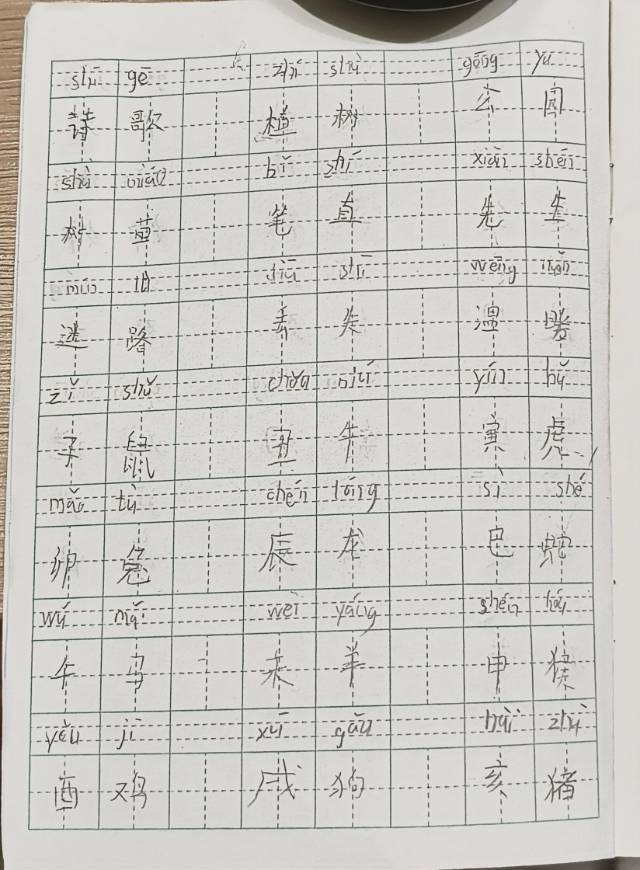 shī gē zhí shù gōng yu
詩 歌 植 树 公 园
shù miáo bǐ zhí xiān shēn
树 苗 笔 直 先 生
diū shī wēng nuǎn
迷 路 丢 失 温 暖
zǐ shǔ chǒu niú yín hǔ
子 鼠 丑 牛 寅 虎
mǎo tù chén lóng sì shé
卯 兔 辰 龙 巳 蛇
wǔ mǎ wèi yáng shēn hóu
午 马 未 羊 申 猴
yǒu jī xū gǒu hài zhū
酉 鸡 戌 狗 亥 猪